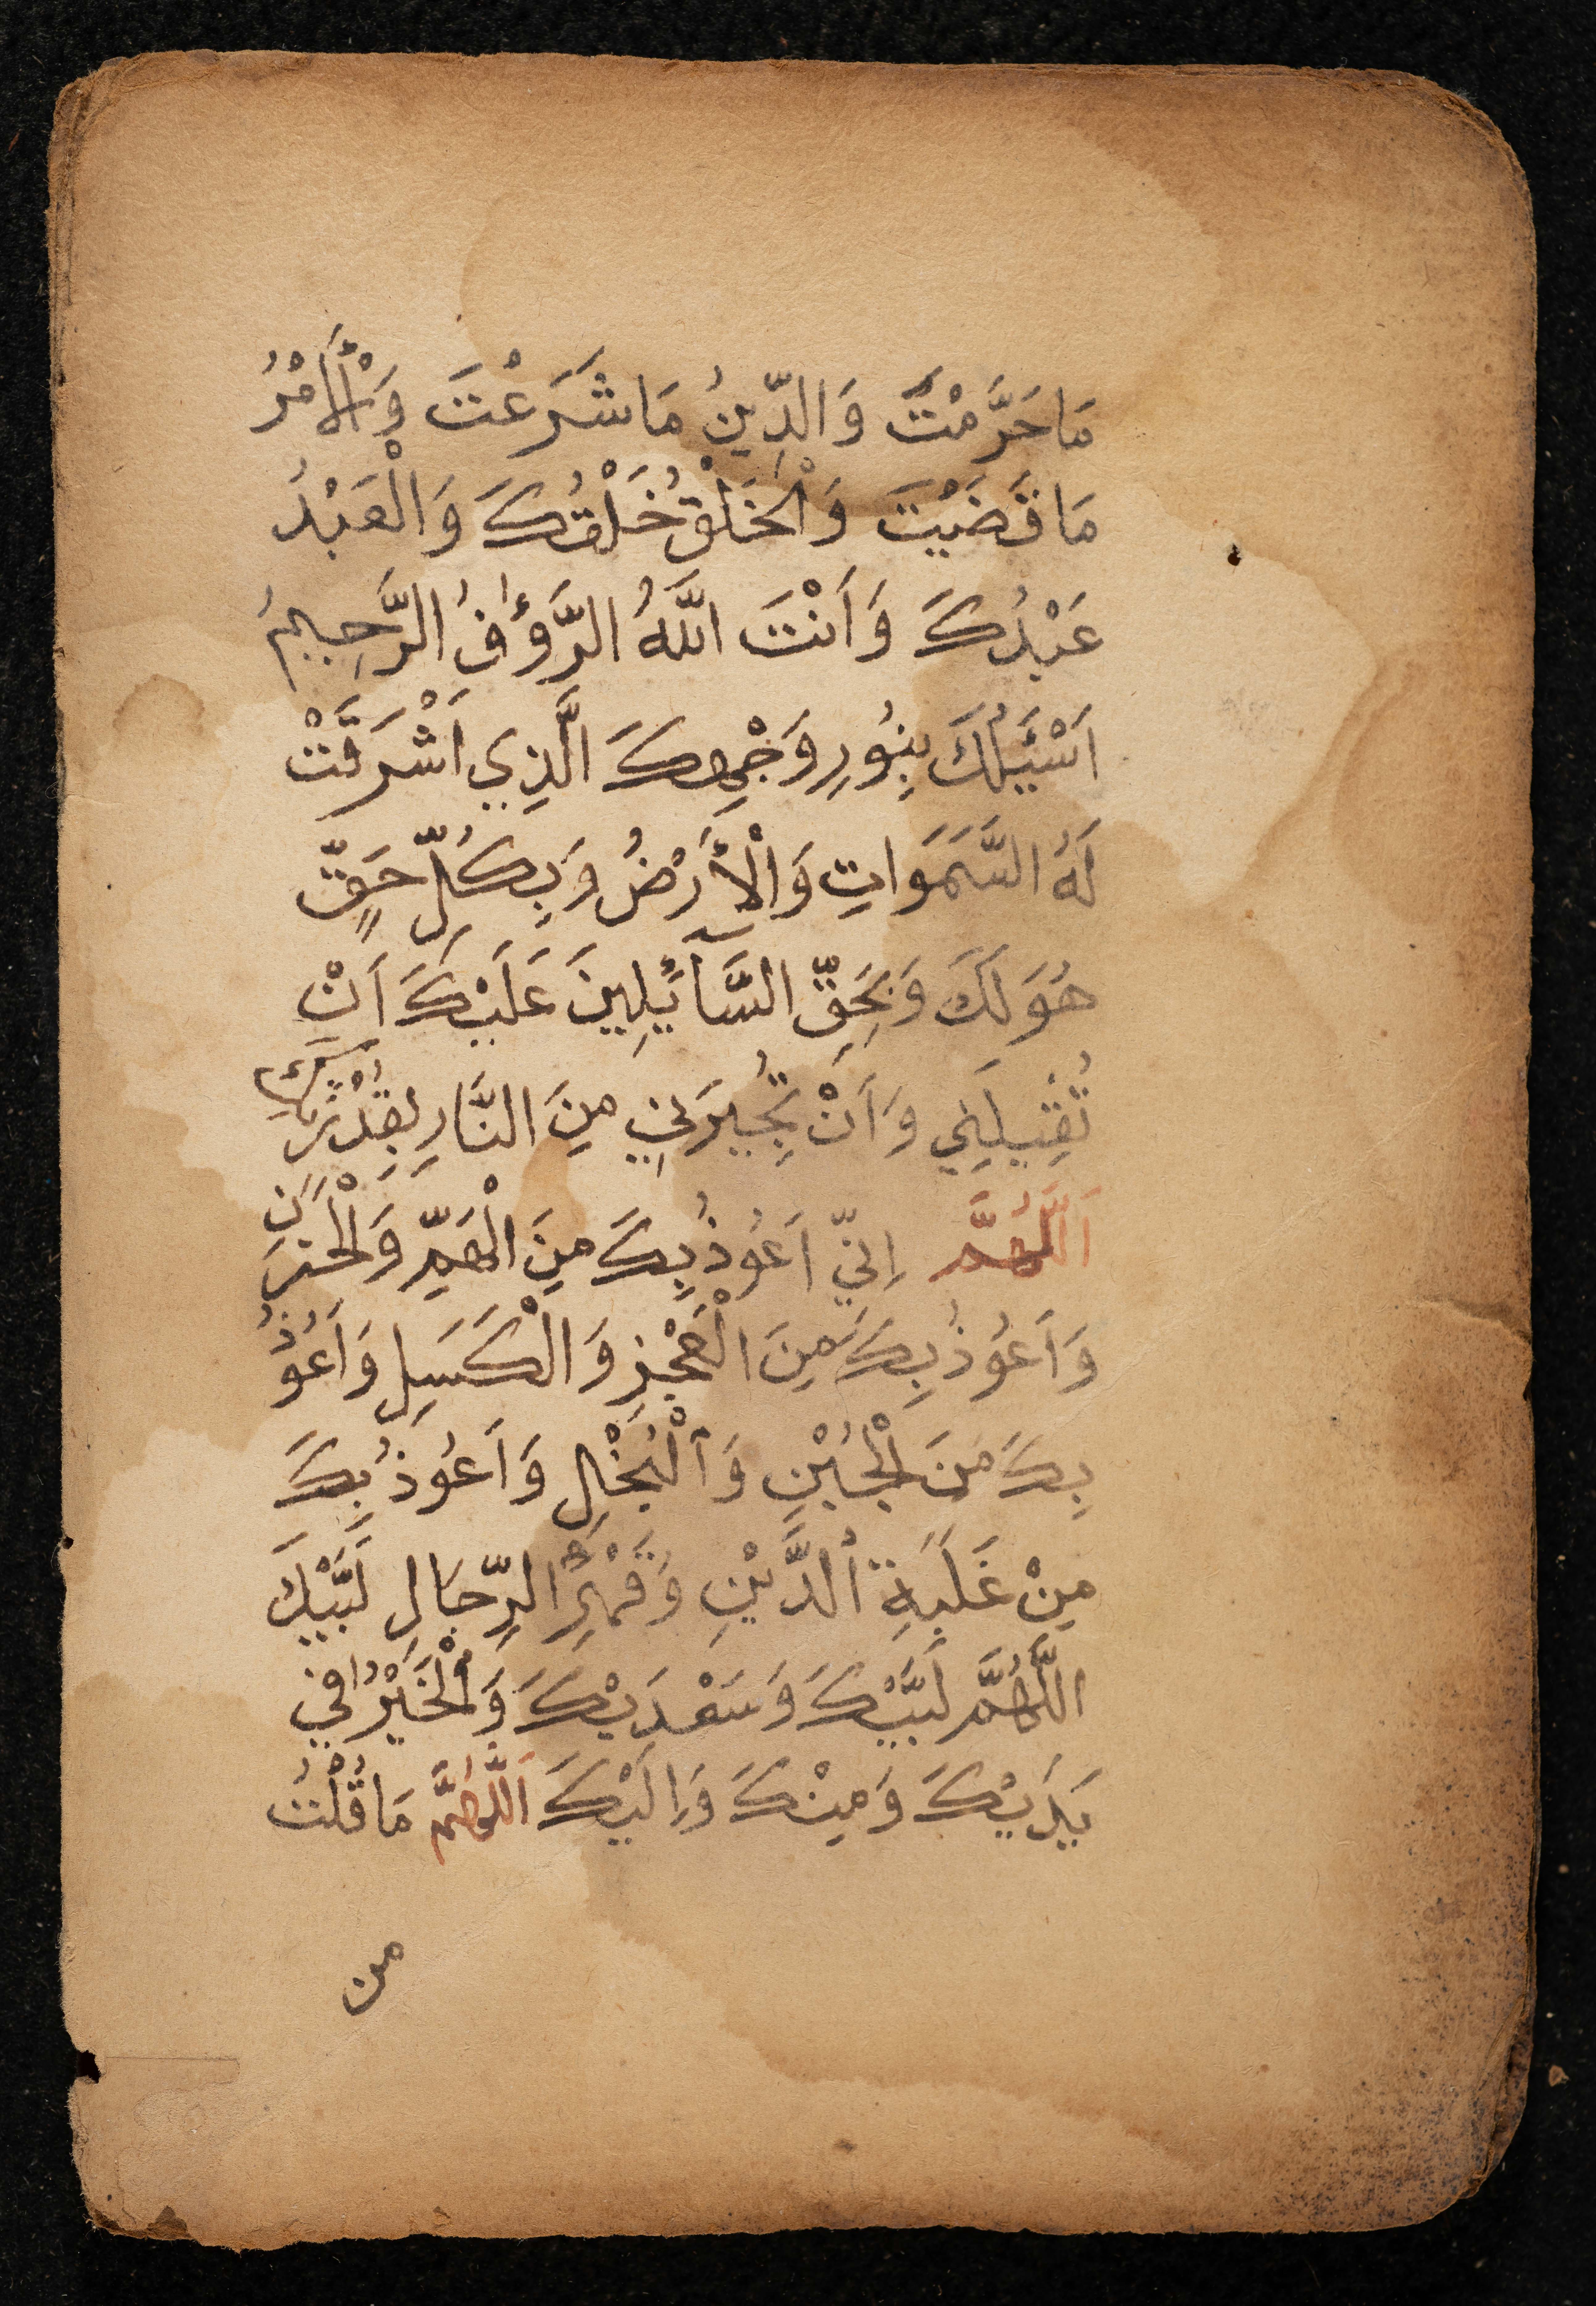 مَا حَرَّمْتَ وَالدِّينُ مَا شَرَعْتَ وَالْأَمْرُ
مَا قَضَيْتَ وَالْخَلْقُ خَلْقُكَ وَالْعَبْدُ
عَبْدُكَ وَاَنْتَ اللَّهُ الرَّؤُفُ الرَّحِيمُ
اَسْئَلُكَ بِنُورِ وَجْهِكَ الَّذِي اَشْرَقَتْ
لَهُ السَّمَوَاتِ وَالْأَرْضُ وَبِكُلِّ حَقٍّ
هُوَ لَكَ وَبِحَقِّ السَّآئِلِينَ عَلَيْكَ اَنْ
تُقِيلَنِي وَاَنْ تُجِيرَنِي مِنَ النَّارِ بِقُدْرَتِكَ
اَللَّهُمَّ اِنِّي اَعُوذُ بِكَ مِنَ الْهَمِّ وَالْحَزَنِ
وَاَعُوذُ بِكَ مِنَ الْعَجْزِ وَالْكَسَلِ وَاَعُوذُ
بِكَ مِنَ الْجُبْنِ وَالْبُخْلِ وَاَعُوذُ بِكَ
مِنْ غَلَبَةِ الدَّيْنِ وَقَهْرِ الرِّجَالِ لَبَّيْكَ
اللَّهُمَّ لَبَّيْكَ وَسَعْدَيْكَ وَالْخَيْرُ فِي
يَدَيْكَ وَمِنْكَ وَاِلَيْكَ اَللَّهُمَّ مَا قُلْتُ
من